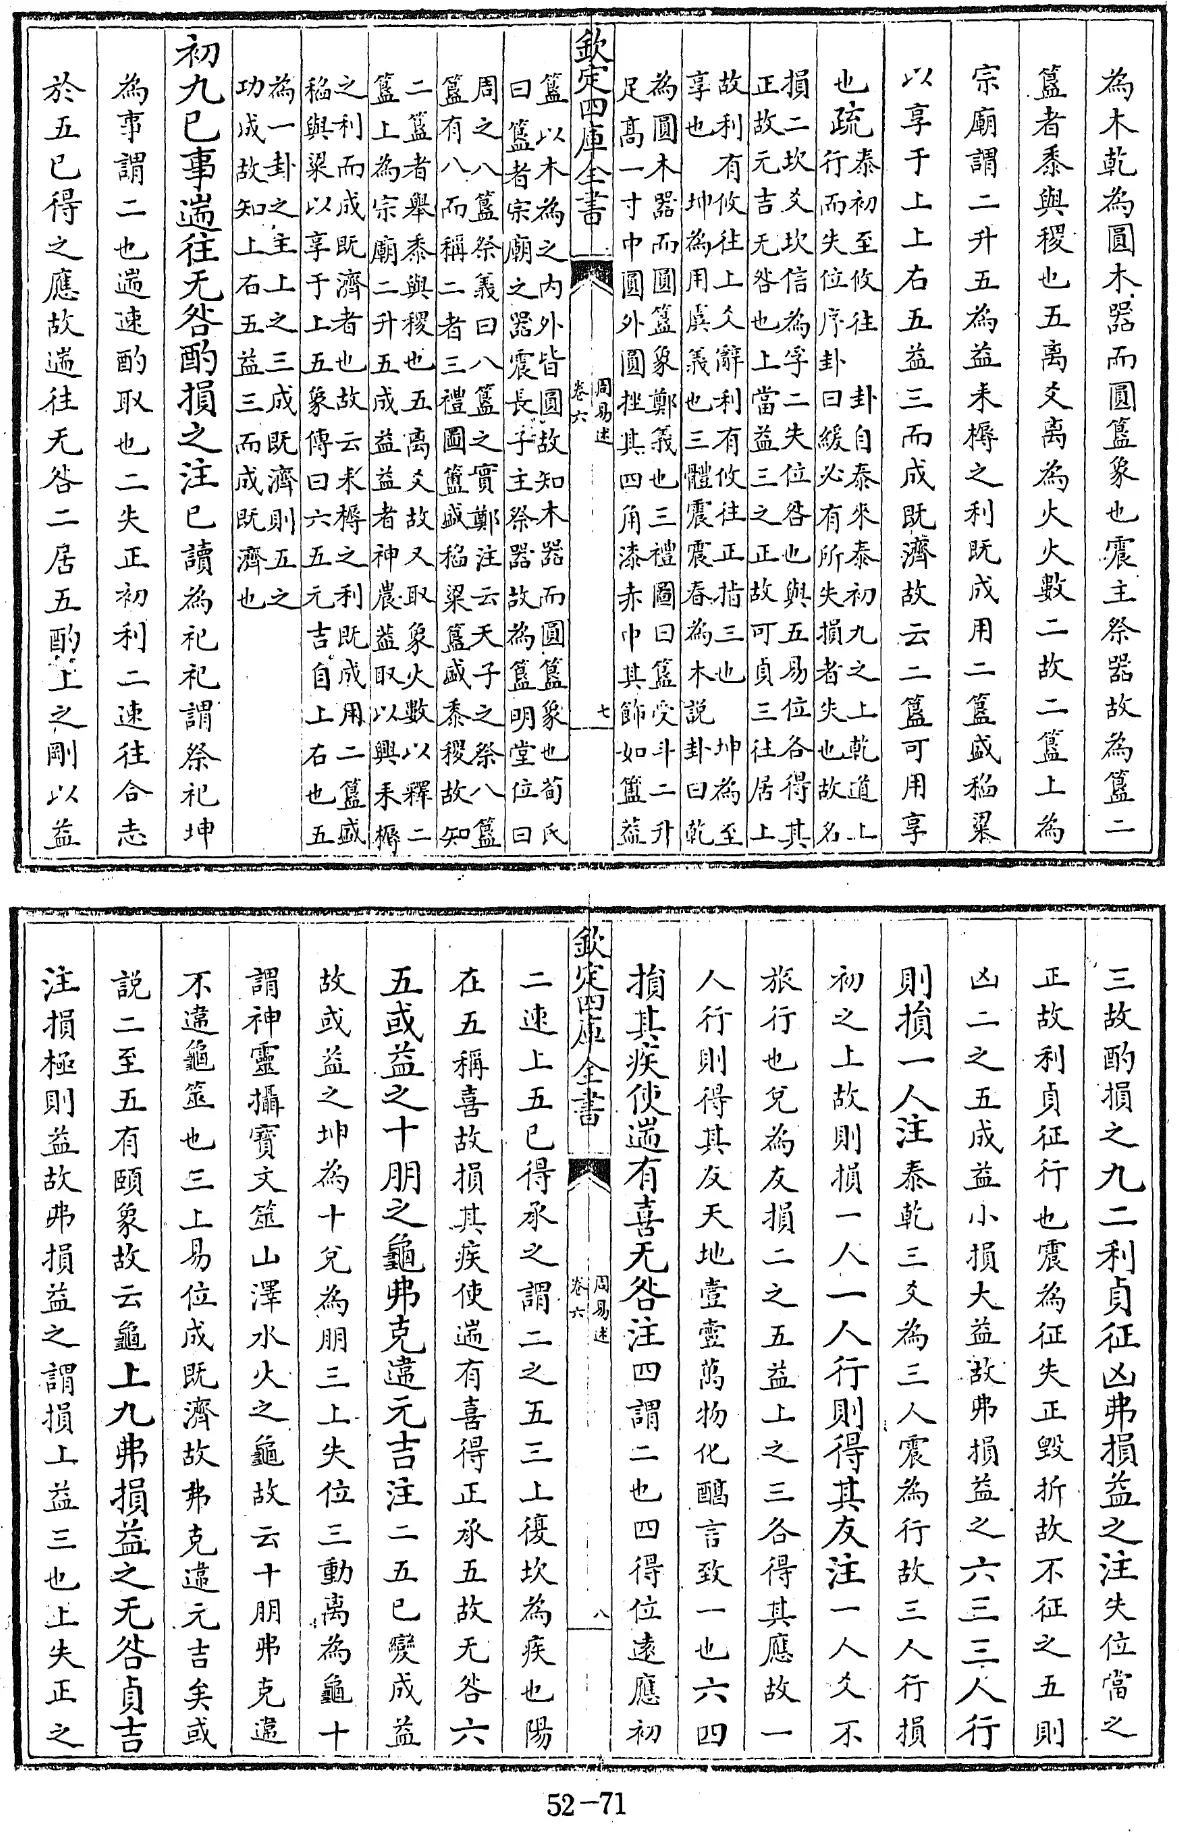 為木乾為圓木器而圓簋象也震主祭器故為簋二
簋者黍與稷也五离爻离為火火數二故二簋上為
宗廟謂二升五為益耒耨之利既成用二簋盛稻粱
以享于上上右五益三而成既濟故云二簋可用享
也疏
泰初至攸往　卦自泰來泰初九之上乾道上
行而失位序卦曰緩必有所失損者失也故名
損二坎爻坎信為孚二失位咎也與五易位各得其
正故元吉无咎也上當益三之正故可貞三往居上
故利有攸往上爻辭利有攸往正指三也　坤為至
享也　坤為用虞義也三體震震春為木說卦曰乾
為圓木器而圓簋象鄭義也三禮圖曰簋受斗二升
足高一寸中圓外圓挫其四角漆赤中其飾如簠蓋
欽定四庫全書
周易述
卷六
七
簋以木為之内外皆圓故知木器而圓簋象也荀氏
曰簋者宗廟之器震長子主祭器故為簋明堂位曰
周之八簋祭義曰八簋之實鄭注云天子之祭八簋
簋有八而稱二者三禮圖簠盛稻粱簋盛黍稷故知
二簋者舉黍與稷也五离爻故又取象火數以釋二
簋上為宗廟二升五成益益者神農蓋取以興耒耨
之利而成既濟者也故云耒耨之利既成用二簋盛
稻與粱以享于上五象傳曰六五元吉自上右也五
為一卦之主上之三成既濟則五之
功成故知上右五益三而成既濟也
初九巳事遄往无咎酌損之注巳讀為祀祀謂祭祀坤
為事謂二也遄速酌取也二失正初利二速往合志
於五巳得之應故遄往无咎二居五酌上之剛以益
三故酌損之九二利貞征凶弗損益之注失位當之
正故利貞征行也震為征失正毀折故不征之五則
凶二之五成益小損大益故弗損益之六三三人行
則損一人注泰乾三爻為三人震為行故三人行損
初之上故則損一人一人行則得其友注一人爻不
旅行也兌為友損二之五益上之三各得其應故一
人行則得其友天地壹壺萬物化醇言致一也六四
損其疾使遄有喜无咎注四謂二也四得位遠應初
欽定四庫全書
周易述
卷六
八
二速上五巳得承之謂二之五三上復坎為疾也陽
在五稱喜故損其疾使遄有喜得正承五故无咎六
五或益之十朋之龜弗克違元吉注二五已變成益
故或益之坤為十兌為朋三上失位三動离為龜十
謂神靈攝寶文筮山澤水火之龜故云十朋弗克違
不違龜筮也三上易位成既濟故弗克違元吉矣或
說二至五有頤象故云龜上九弗損益之无咎貞吉
注損極則益故弗損益之謂損上益三也上失正之
52-71